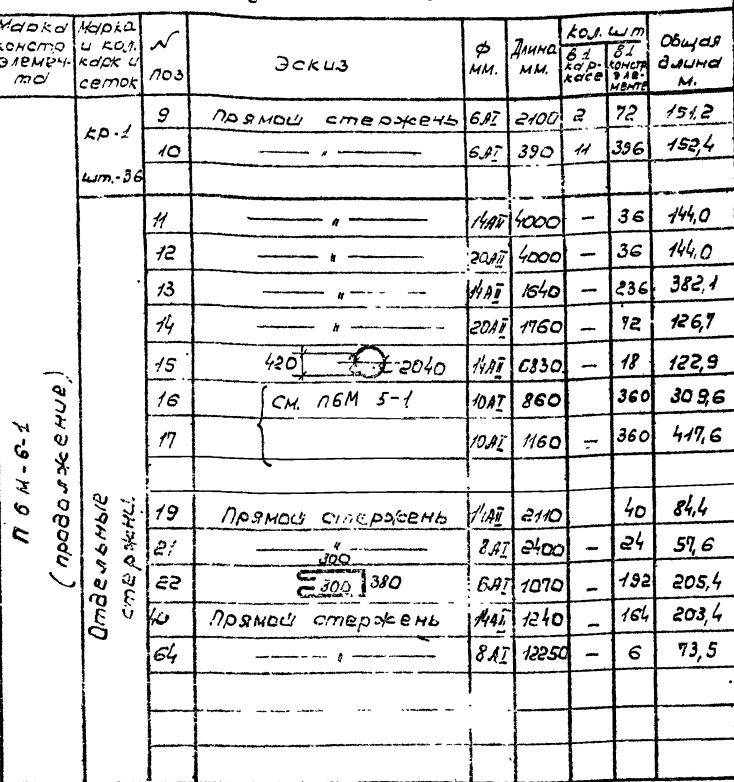 Марка констр элемента | Марка и кол. карк и сеток | N поз | Эскиз | ф мм. | Длина мм. | Кол. шт в 1 каркасе | Кол. шт в 1 констр элементе | Общая длина м.
П6М-6-1 (продолжение)
кр-1 шт.-36
9 | Прямой стержень | 6AI | 2100 | 2 | 72 | 151,2
10 | — " — | 6AI | 390 | 11 | 396 | 152,4
Отдельные стержни.
11 | — " — | 14AII | 4000 | — | 36 | 144,0
12 | — " — | 20AII | 4000 | — | 36 | 144,0
13 | — " — | 14AII | 1640 | — | 236 | 382,1
14 | — " — | 20AII | 1760 | — | 72 | 126,7
15 | 420 2040 | 14AII | 6830 | — | 18 | 122,9
16 | См. П6М 5-1 | 10AI | 860 | 360 | 309,6
17 | 10AI | 1160 | — | 360 | 417,6
19 | Прямой стержень | 14AII | 2110 | 40 | 84,4
21 | — " — | 8AI | 2400 | — | 24 | 57,6
22 | 300 300 380 | 6AI | 1070 | — | 192 | 205,4
40 | Прямой стержень | 14AI | 1240 | — | 164 | 203,4
64 | — " — | 8AI | 12250 | — | 6 | 73,5